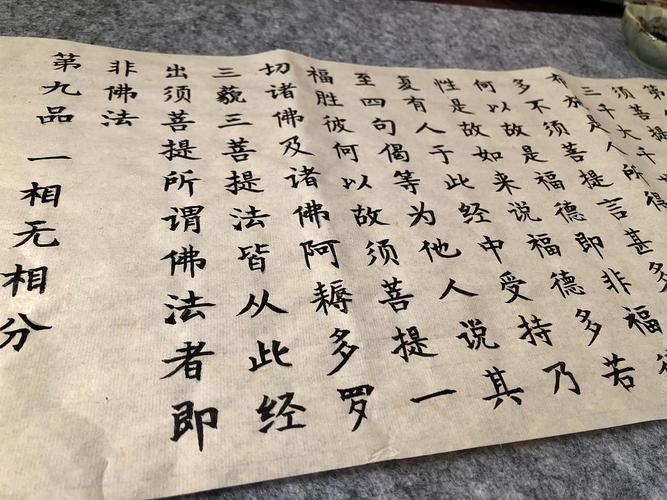 第
须菩提
三千大千
布施是人所得
多不须菩提言甚多
何以故是福德即非福德
性是故如来说福德多若
复有人于此经中受持乃
至四句偈等为他人说其
福胜彼何以故须菩提一
切诸佛及诸佛阿耨多罗
三藐三菩提法皆从此经
出须菩提所谓佛法者即
非佛法
第九品一相无相分